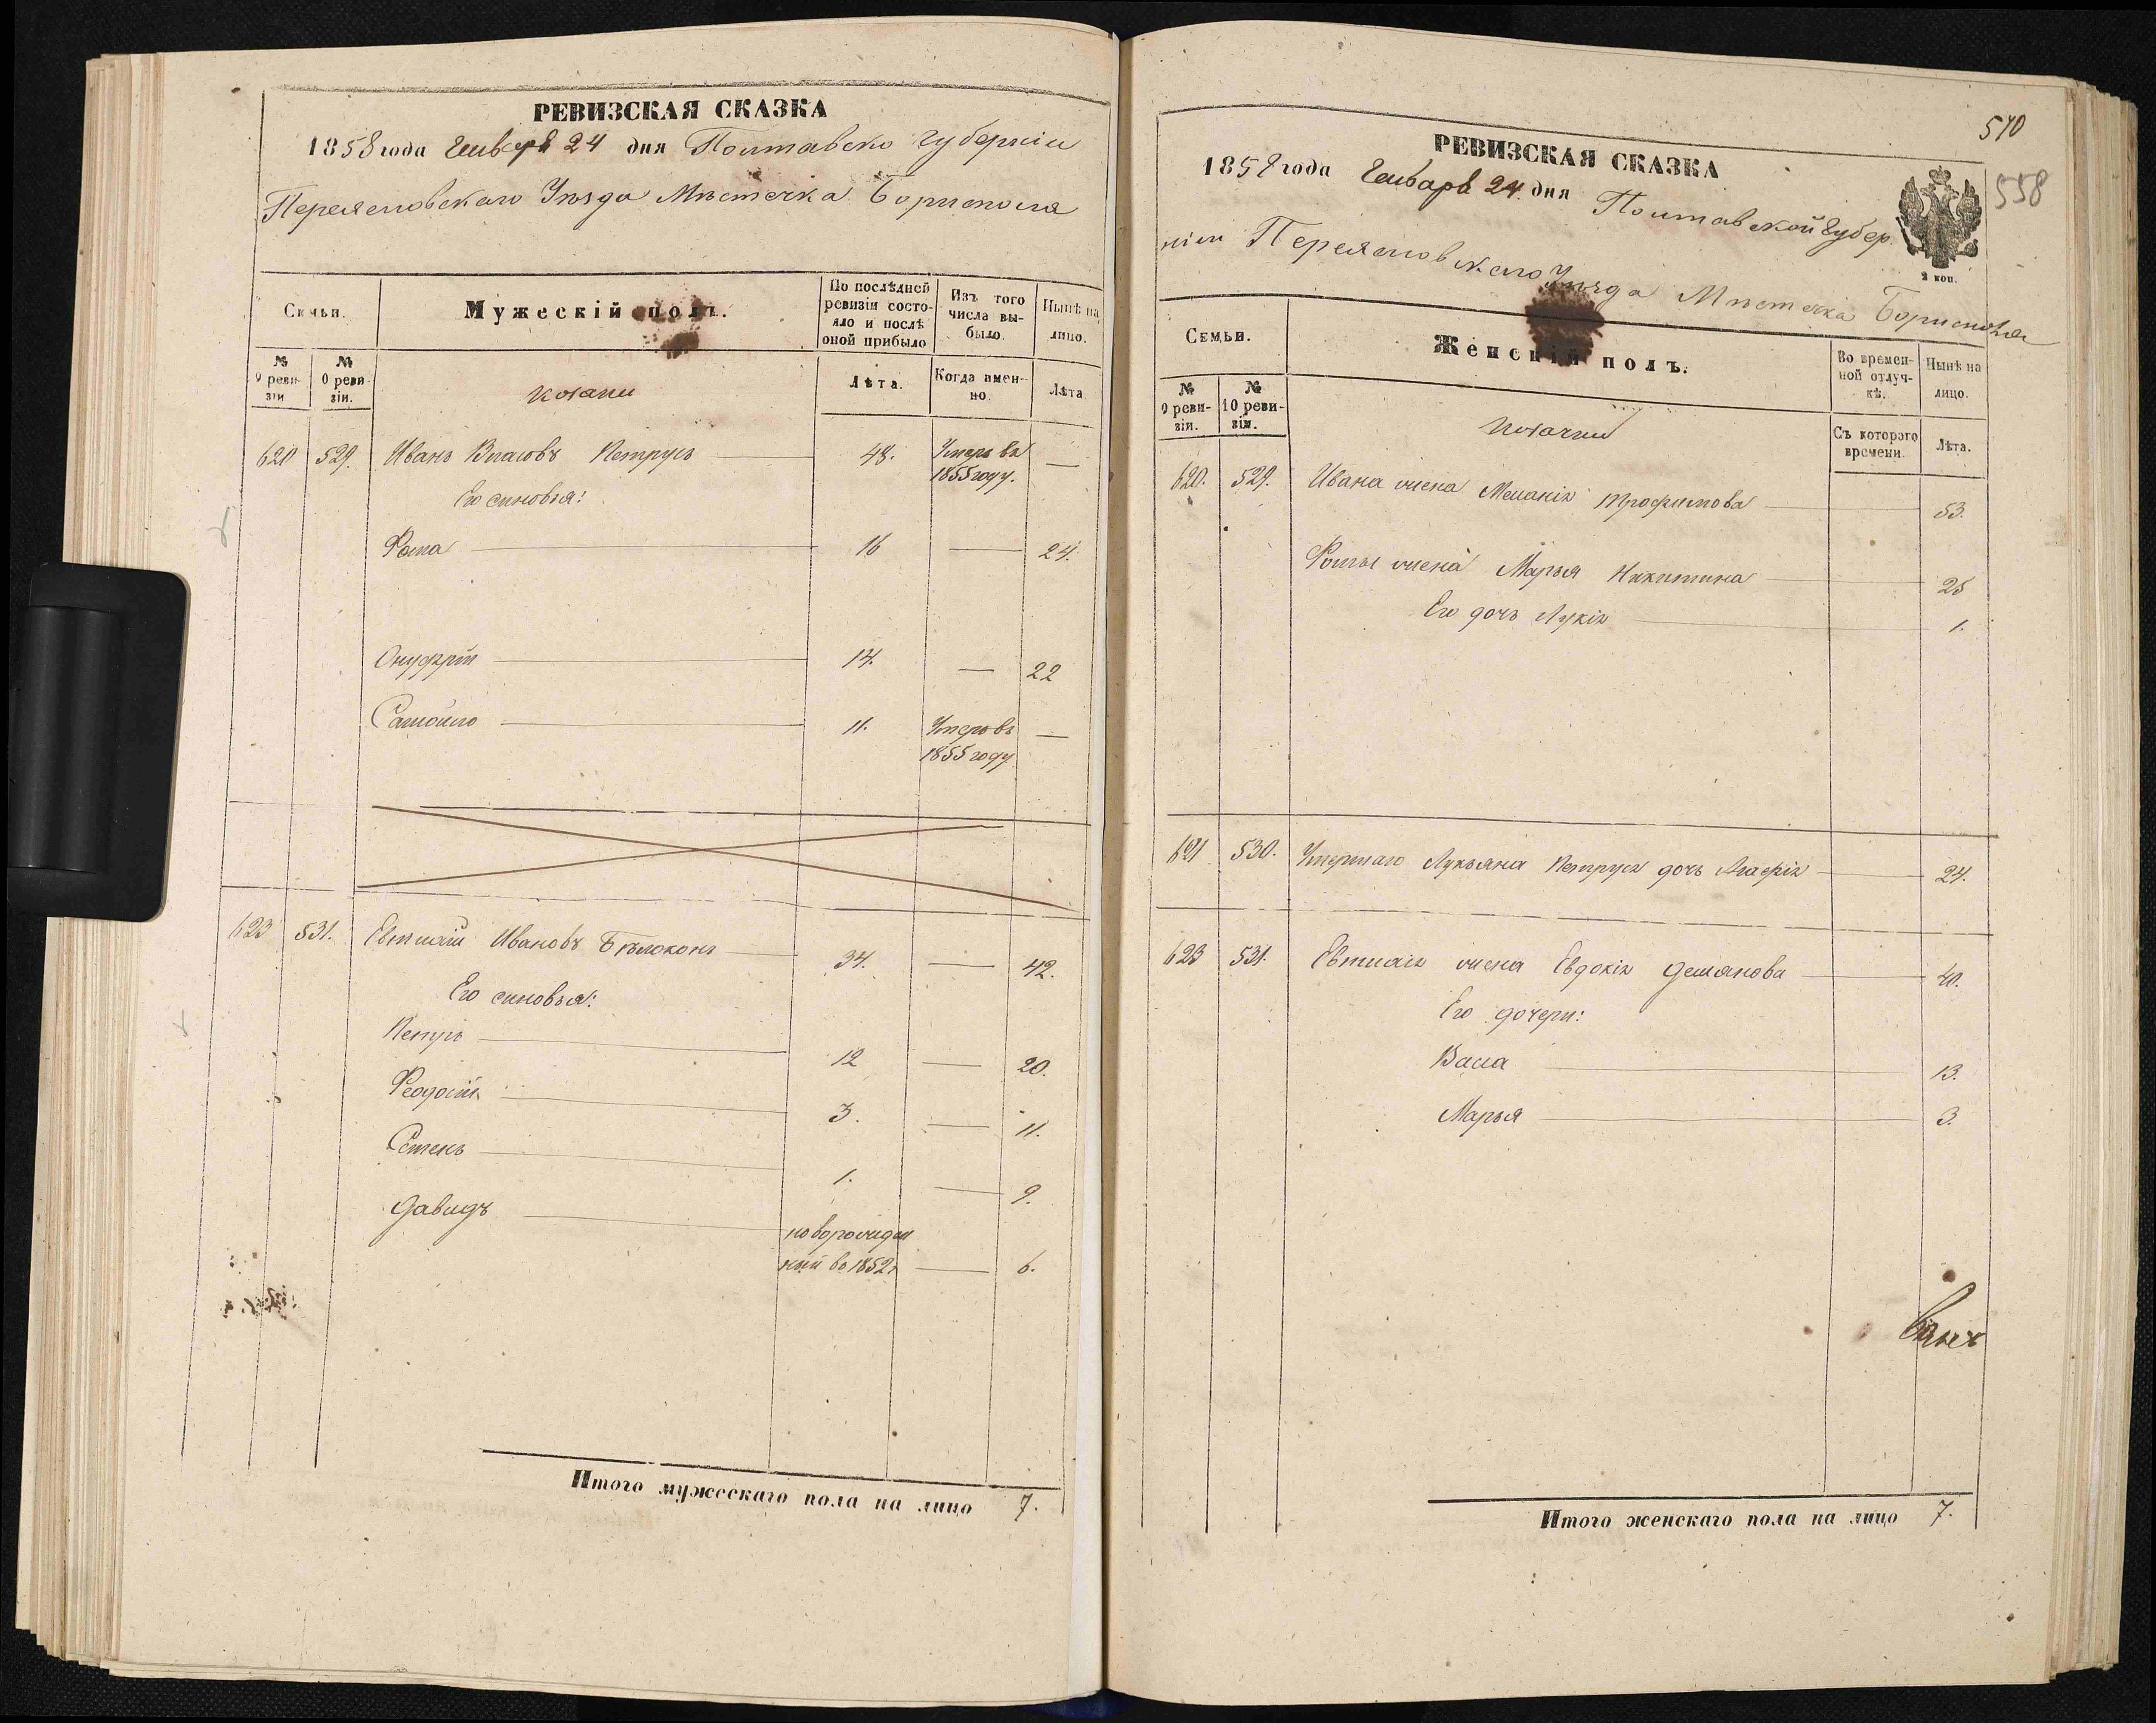 РЕВИЗСКАЯ СКАЗКА
1858 года Генваря 24 дня Полтавско Губерніи
Переяславскаго Уѣзда Мѣстечка Борисполя
Семьи.
Мужескій полъ.
По послѣдней ревизіи состояло и послѣ оной прибыло
Изъ того числа выбыло.
Нынѣ на лицо.
№ 9 ревизіи
№ 10 ревизіи.
козаки
Лѣта.
Когда именно.
Лѣта
620 529. Иванъ Власовъ Петрусь 48. Умеръ въ 1855 году. —
Его сыновья:
Фома 16 — 24.
Онуфрій 14. — 22
Самойло 11. Умеръ въ 1855 году —
623 531. Евтихій Ивановъ Бѣлоконь 34. — 42.
Его сыновья:
Петръ 12 — 20.
Феодосій 3. — 11.
Стенъ 1. — 9.
Давидъ новорожден
ный въ 1852 г — 6.
Итого мужескаго пола на лицо 7.
570
558
РЕВИЗСКАЯ СКАЗКА
1858 года Генваря 24. дня Полтавской Губер.
ніи Переяславскаго Уѣзда Мѣстечка Борисполя
2 коп.
Семьи.
Женскій полъ.
Во временной отлучкѣ.
Нынѣ на лицо.
№ 9 ревизіи.
№ 10 ревизіи.
козачки
Съ которого времени.
Лѣта.
620. 529. Ивана жена Меланія Трофимова 53.
Фомы жена Марья Никитина 25
Его дочь Лукія 1.
621 530. Умершаго Лукьяна Петруся дочь Агафія 24.
623 531. Евтихія жена Евдокія Демянова 40.
Его дочери:
Васса 13.
Марья 3.
Итого женскаго пола на лицо 7.